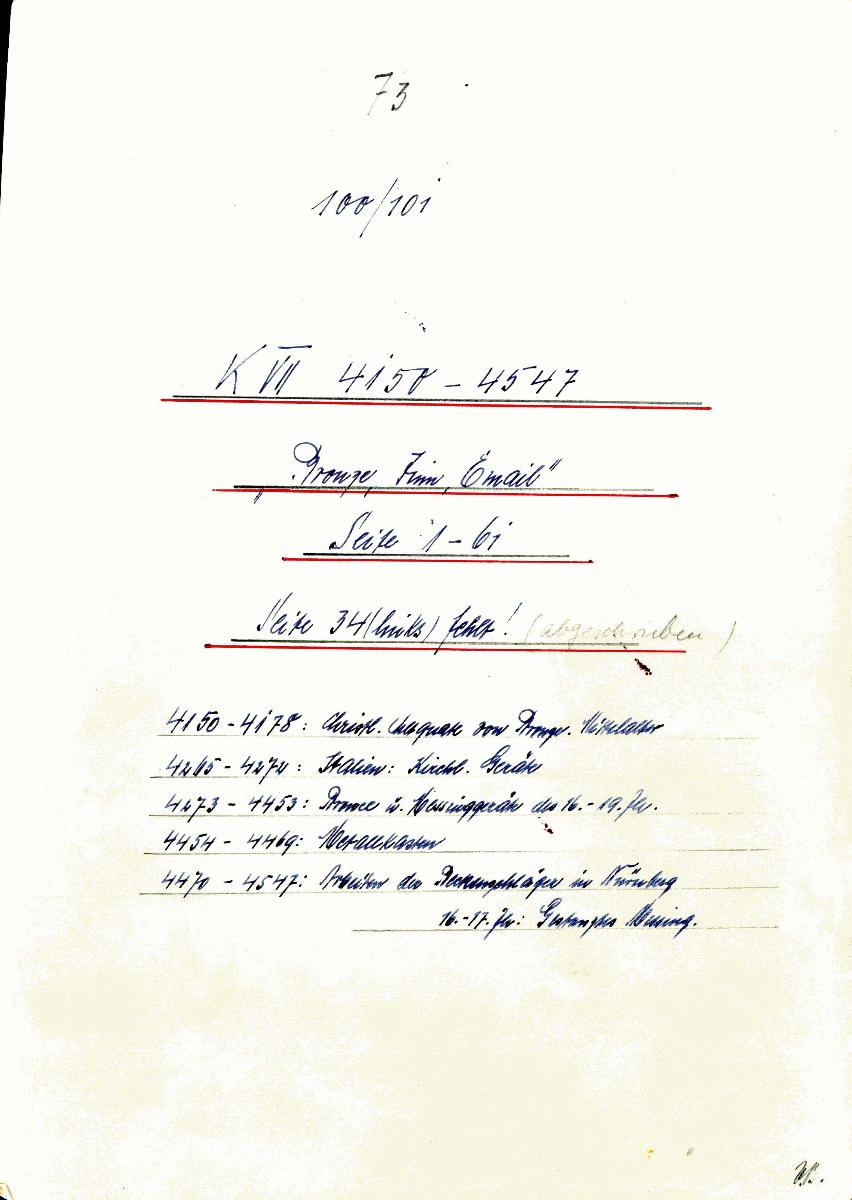 73
100/101
K VII 4150 - 4547
"Bronze, Zinn, Email"
Seite 1 - 61
Seite 34 (links) fehlt! (abgeschrieben)
4150 - 4178: Christl. von Bronze. Mittelalter
4265 - 4272: Italien: Kirchl. Gerät
4273 - 4453: Bronce u. Messinggerät des 16. - 19. Jh.
4454 - 4469: Metallkasten
4470 - 4547: Arbeiten der Beckenschläger in Nürnberg
16.-17. Jh: Gestanztes Messing.